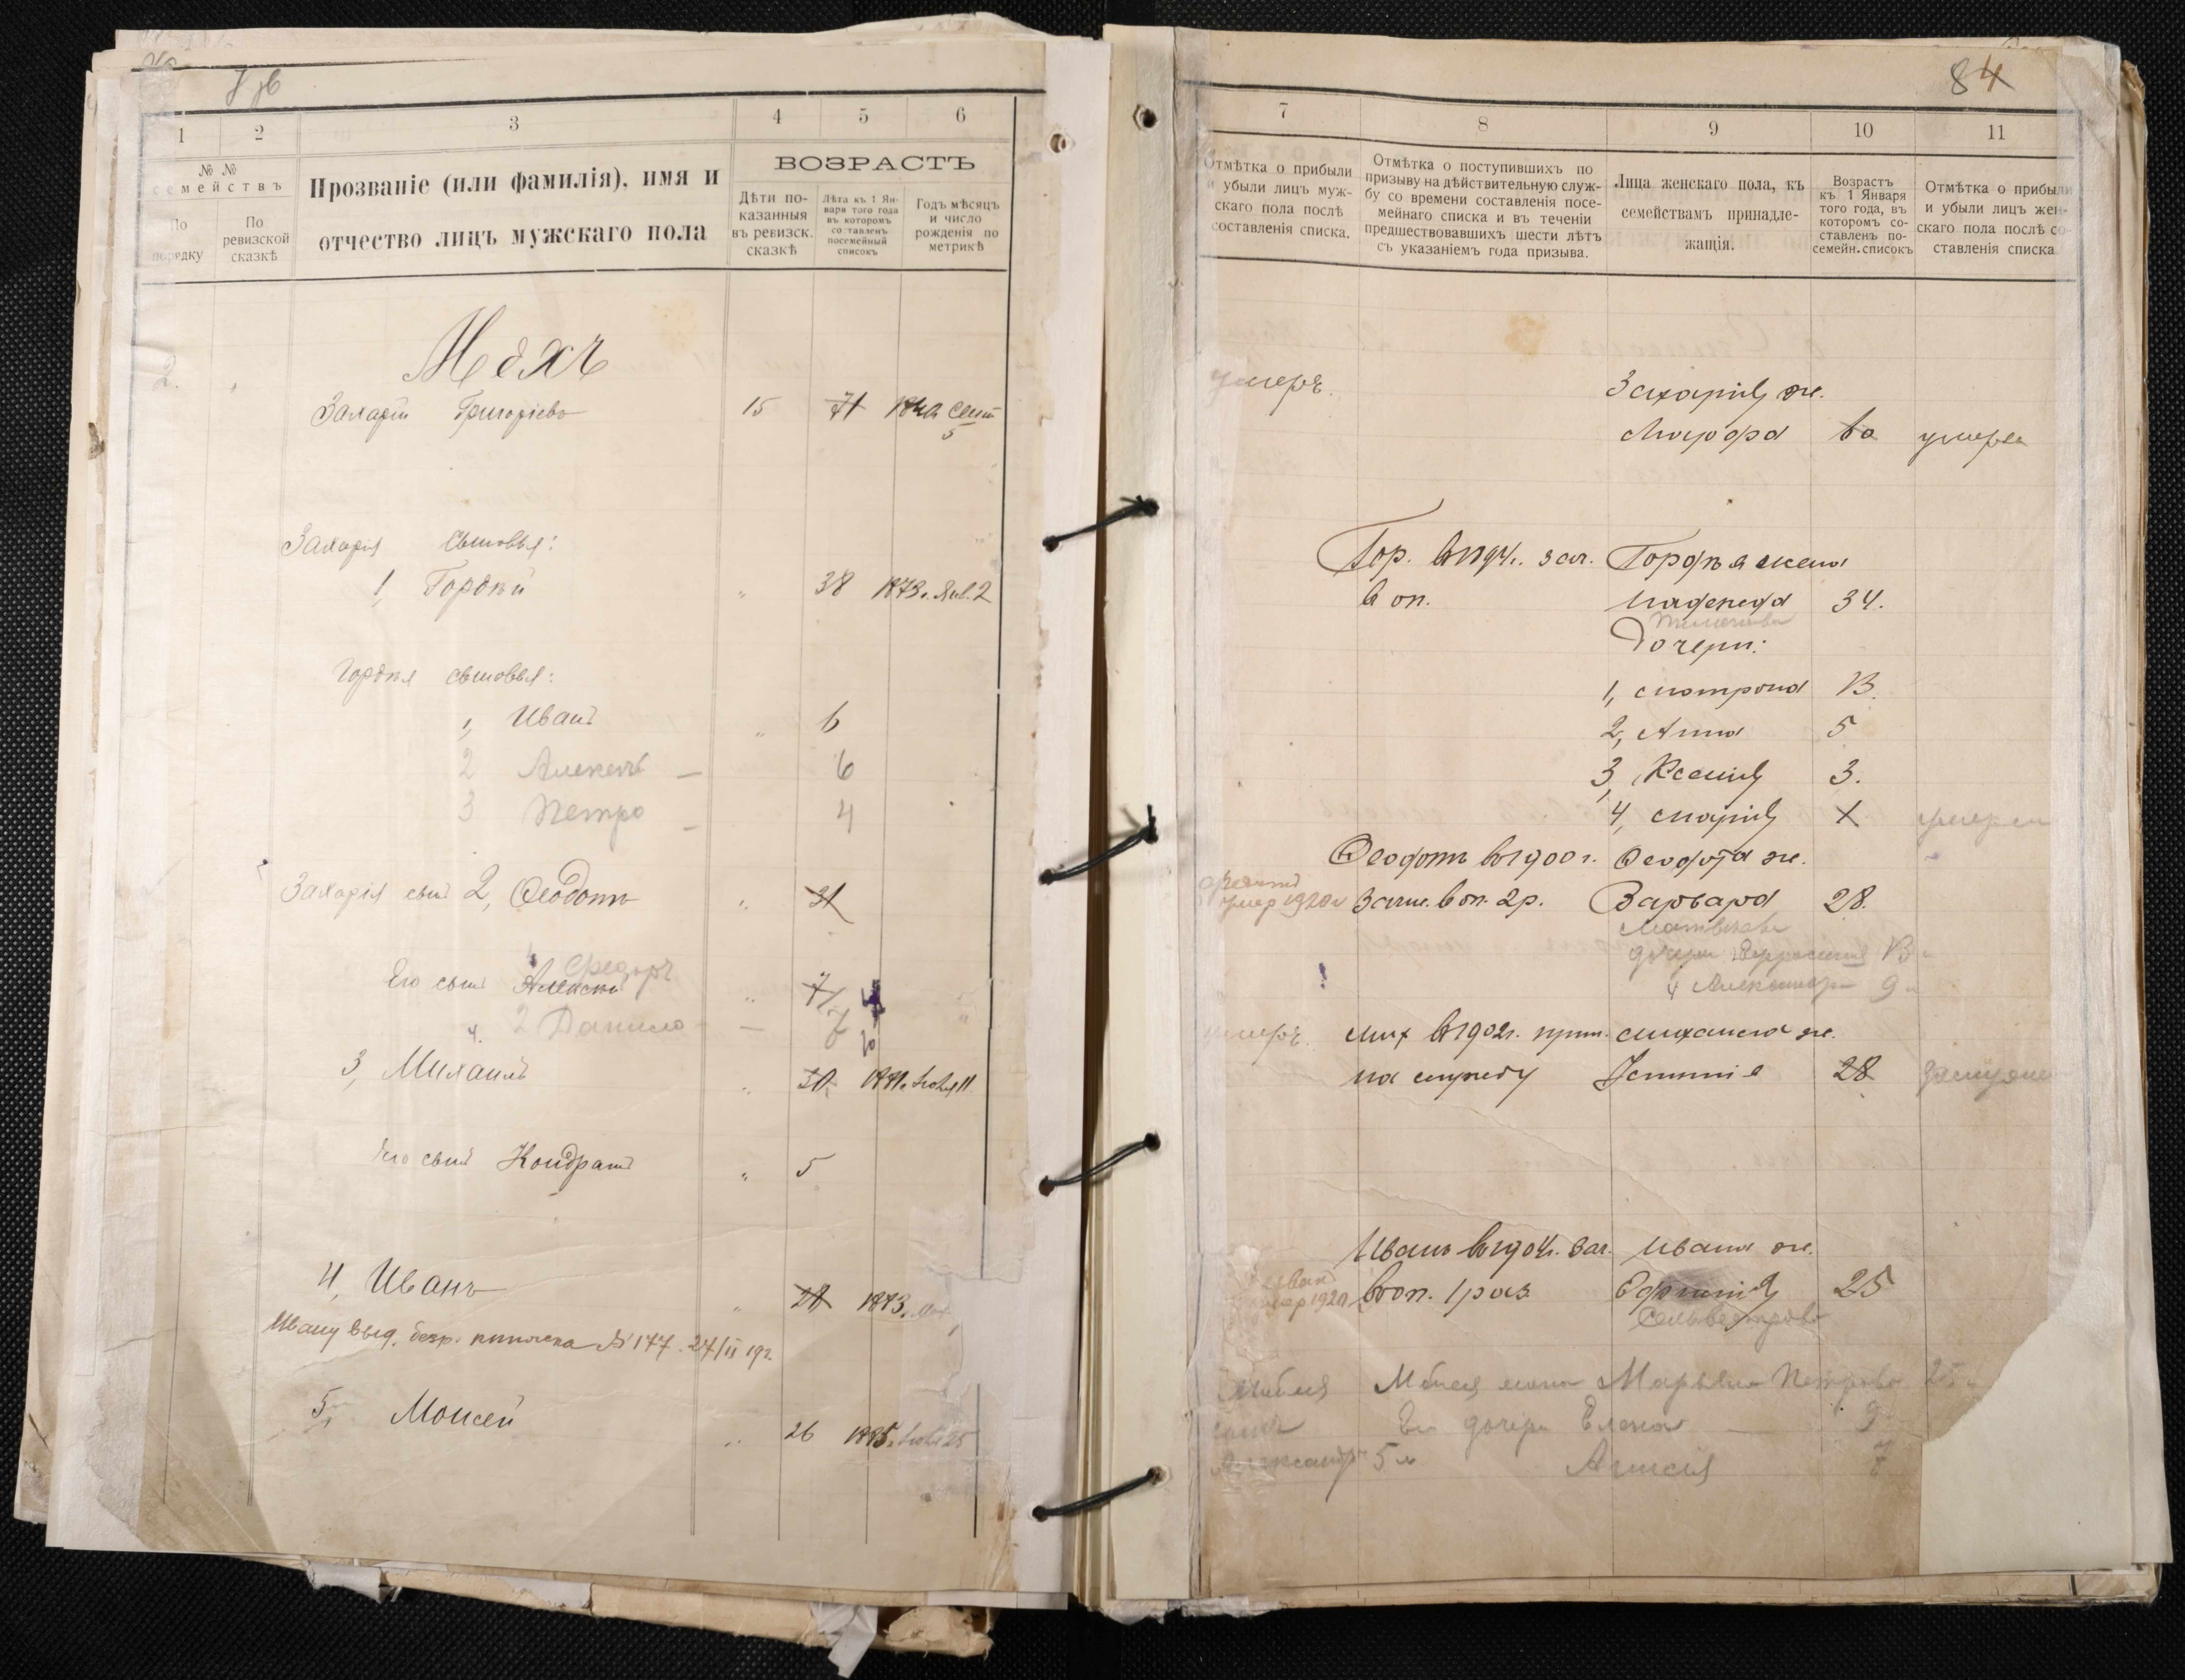 84
1
2
3
4
5
6
№ №
семействъ
По
порядку
По
ревизской
сказкѣ
Прозваніе (или фамилія), имя и
отчество лицъ мужскаго пола
ВОЗРАСТЪ
Дѣти по-
казанныя
въ ревизск.
сказкѣ
Лѣта къ 1 Ян-
варя того года
въ которомъ
составленъ
посемейный
списокъ
Годъ мѣсяцъ
и число
рожденія по
метрикѣ
2.
Захарій Григорьевъ 15 71
5
Захарія сыновья:
1, Гордѣй " 38 1873 г. Янв. 2
Гордѣя сыновья:
1, Иванъ " 6
2 Алексей — 6
3 Петро — 4
Захарія сынъ 2, Ѳеодотъ " 31
Федоръ
Его сынъ Алексей " 7
2 Данило — 7
3, Михаилъ " 30
Его сынъ Кондратъ " 5
4, Иванъ " 28
Ивану выд. безр. книжка № 177. 24/II 19г.
5, Моисей " 26
7
8
9
10
11
Отмѣтка о прибыли
и убыли лицъ муж-
скаго пола послѣ
составленія списка.
Отмѣтка о поступившихъ по
призыву на дѣйствительную служ-
бу со времени составленія посе-
мейнаго списка и въ теченіи
предшествовавшихъ шести лѣтъ
съ указаніемъ года призыва.
Лица женскаго пола, къ
семействамъ принадле-
жащія.
Возрастъ
къ 1 Января
того года, въ
которомъ со-
ставленъ по-
семейн. списокъ
Отмѣтка о прибыли
и убыли лицъ жен-
скаго пола послѣ со-
ставленія списка
умеръ. Захарія ж.
Марфа 60 умерла
Гор. в 1894 г. зач. Гордѣя жена
в оп. Надежда 34.
Дочери:
1, Матрона 13.
2, Анна 5
3, Ксенія 3.
4, Марія умерла
Ѳеодотъ в 1900 г. Ѳеодота ж.
умер 1920 г зачис. в оп. 2 р. Варвара 28.
дочери 13
Александр 9
умеръ. Мих в 1902 г. прин. Михаила ж.
на службу Устинія 28
Иванъ в 1904 г. зач. Ивана ж.
умер 1920 в оп. 1 раз. Ефимія 25
Сельвестрова
Мойсея жена Марьяна Петрова 25
сынъ Его дочери Елена — 9
Александр 5 л Анисія 7